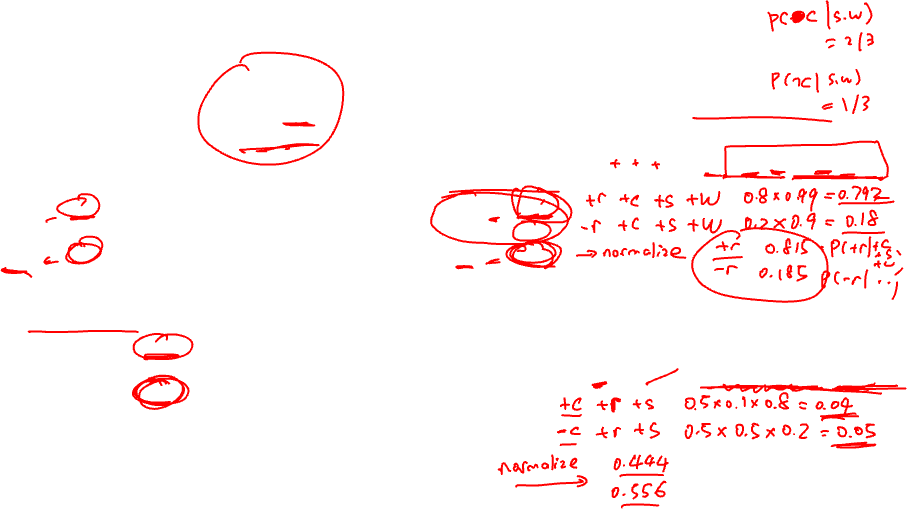 P(C|s.w)
= 2/3
P(¬c|s.w)
= 1/3
+ + +
+r +c +s +w 0.8×0.99=0.792
-r +c +s +w 0.2×0.9=0.18
→normalize +r 0.815 - P(+r|+c,
+s,
-r 0.185 P(-r|..,
+c +r +s 0.5×0.1×0.8=0.04
-c +r +s 0.5×0.5×0.2=0.05
normalize 0.444
0.556